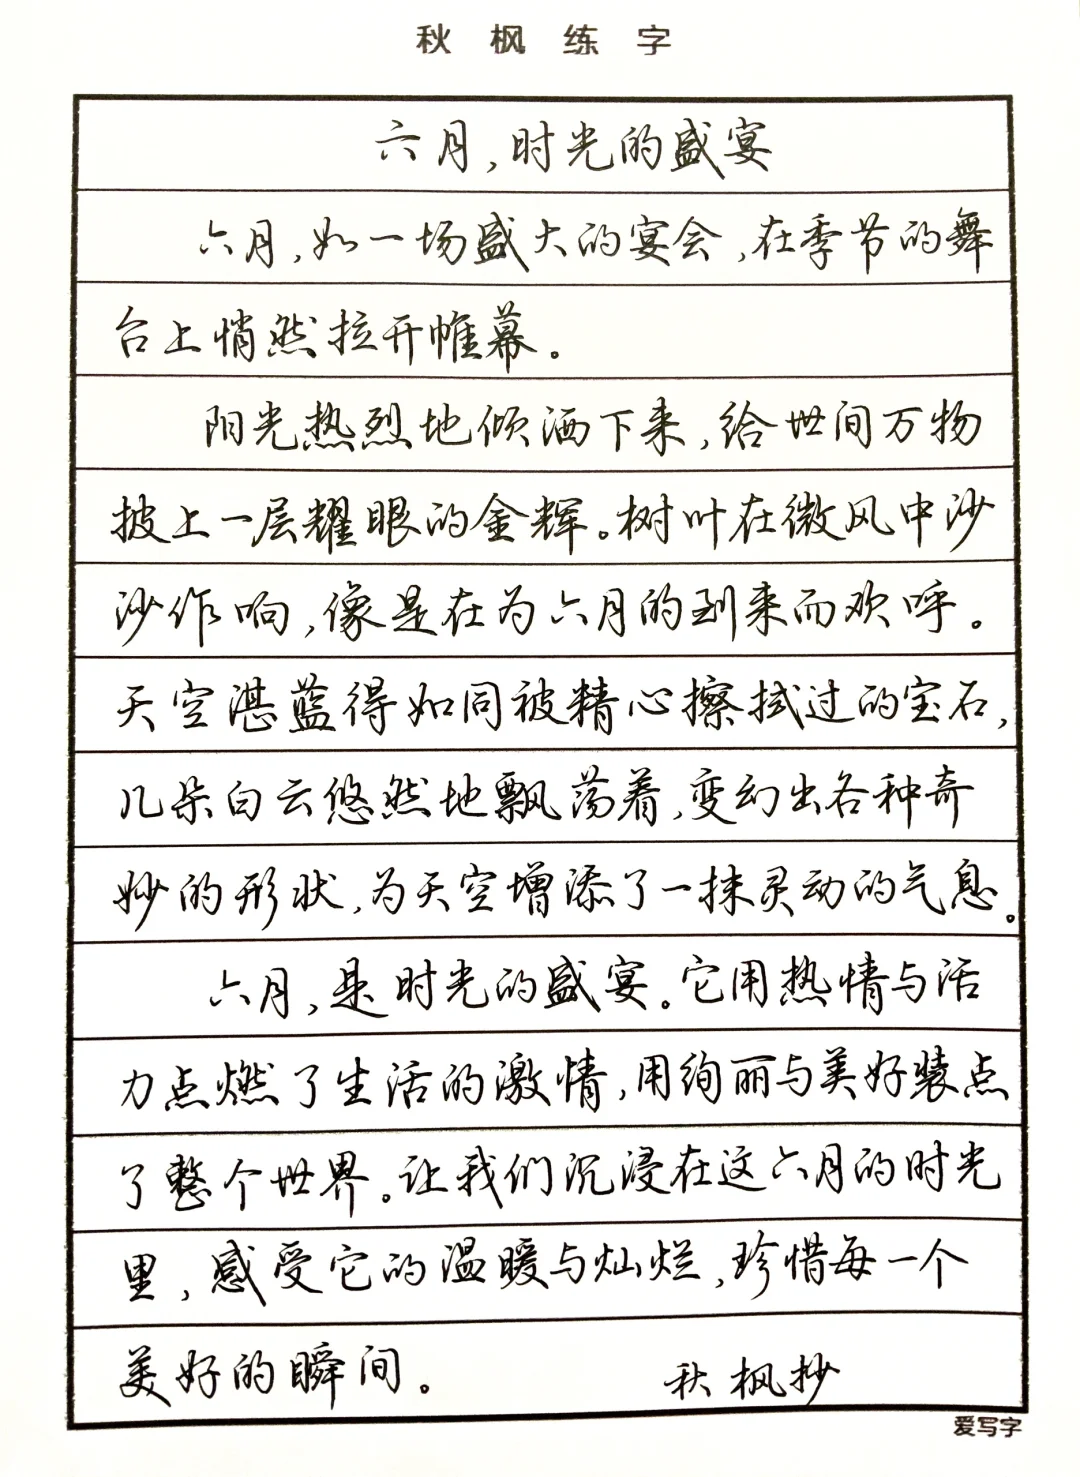 秋枫练字
六月,时光的盛宴
六月,如一场盛大的宴会,在季节的舞
台上悄然拉开帷幕。
阳光热烈地倾洒下来,给世间万物
披上一层耀眼的金辉。树叶在微风中沙
沙作响,像是在为六月的到来而欢呼。
天空湛蓝得如同被精心擦拭过的宝石,
几朵白云悠然地飘荡着,变幻出各种奇
妙的形状,为天空增添了一抹灵动的气息。
六月,是时光的盛宴。它用热情与活
力点燃了生活的激情,用绚丽与美好装点
了整个世界。让我们沉浸在这六月的时光
里,感受它的温暖与灿烂,珍惜每一个
美好的瞬间。 秋枫抄
爱写字